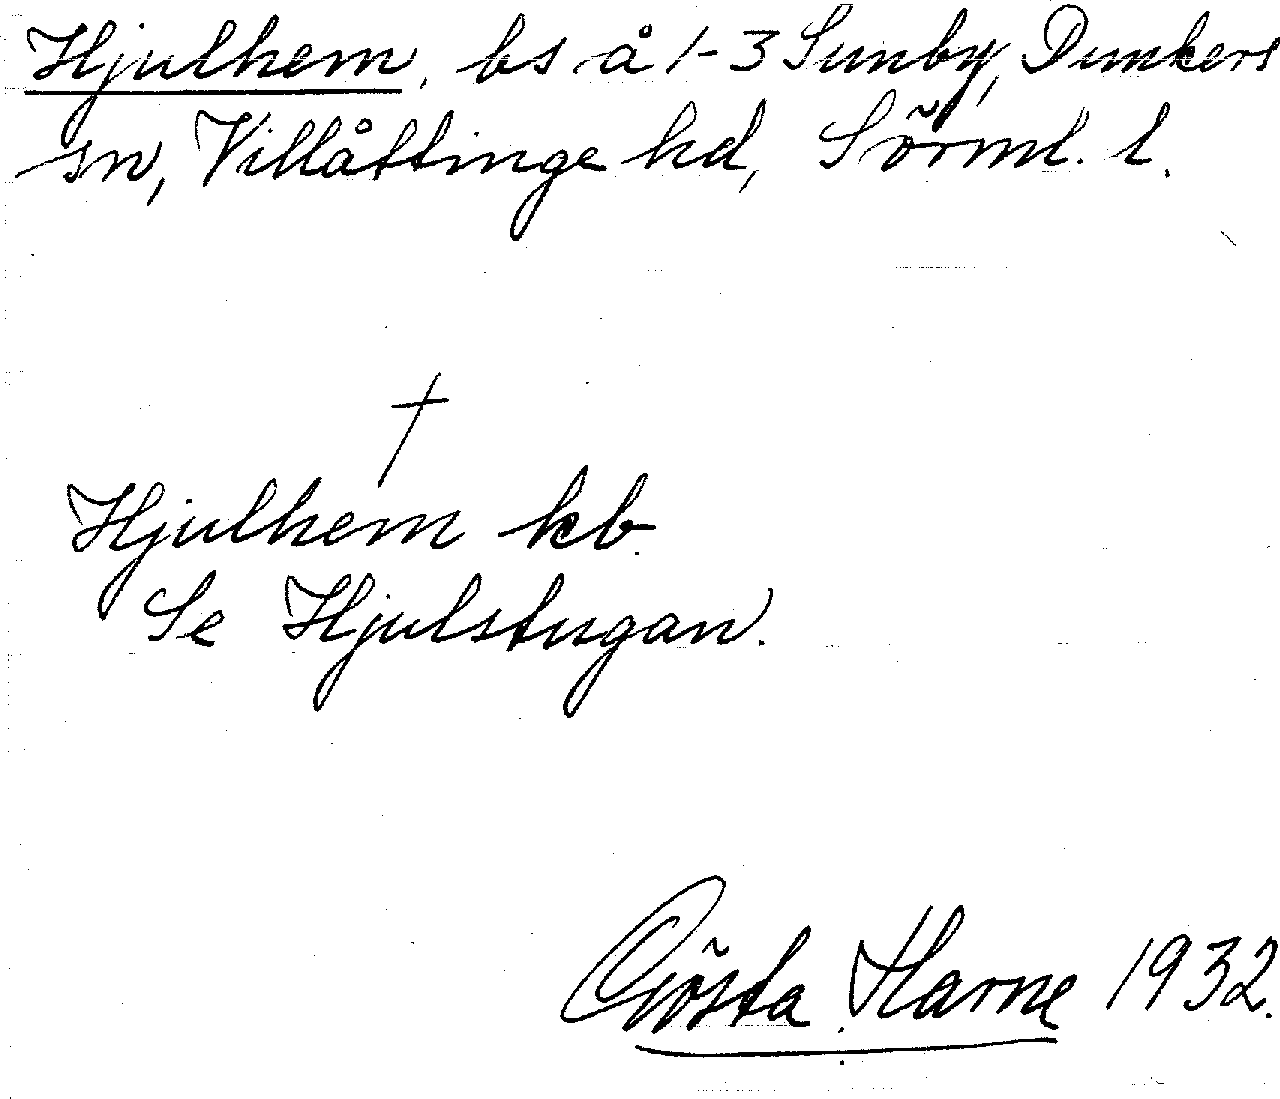 Hjulhem, bs å 1-3 Sunby, Dunkers
sn, Villåttinge hd, Sörml. l.
†
Hjulhem kb.
Se Hjulstugan.
Gösta Harne 1932.